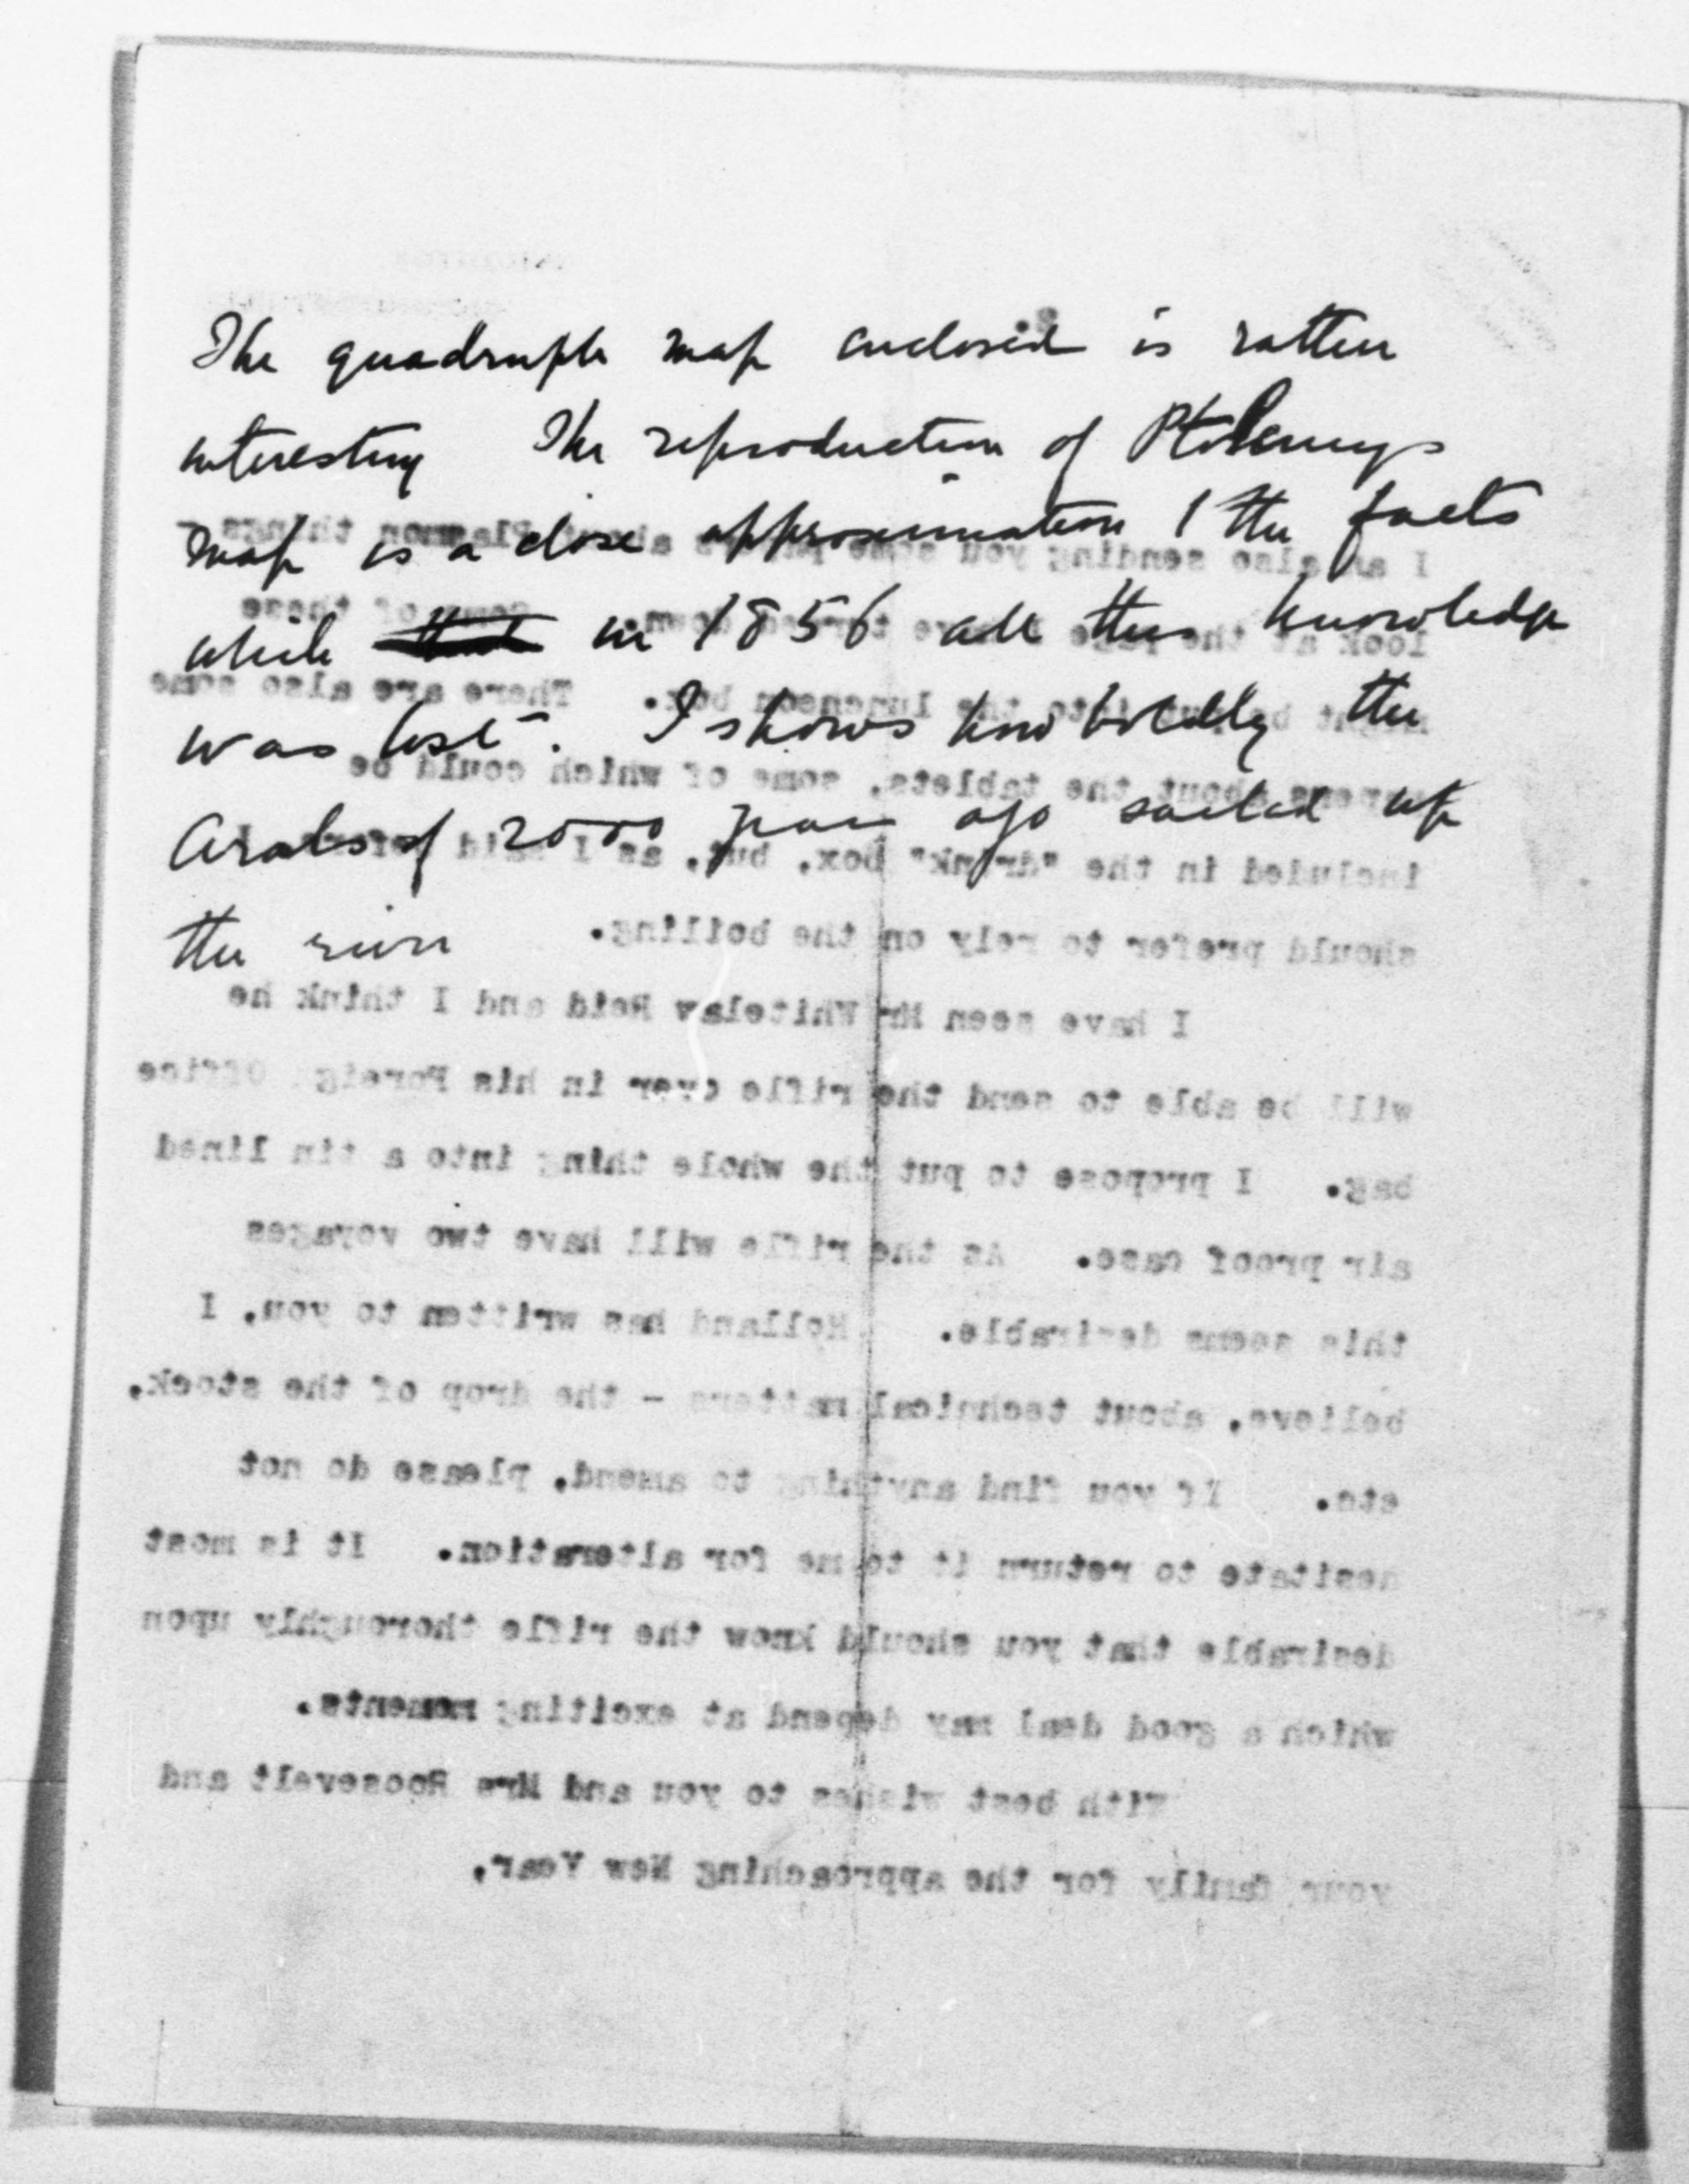 The quadruple map enclosed is rather
interesting The reproduction of Ptolemys
map is a close approximation t the facts
while in 1856 all this knowledge
was lost. I shows how boldly the
Arabs of 2000 years ago sailed up
the river
2.
I am also sending you some about Plasmon things
look at the page turned down. Some of these
might be put into the luncheon box. There are also some
papers about the tablets, some of which could be
included in the "drink" box, but, as I said before, I
should prefer to rely on the boiling.
I have seen Mr Whitelaw Reid and I think he
will be able to send the rifle over in his Foreign Office
bag. I propose to put the whole thing into a tin lined
air proof case. As the rifle will have two voyages
this seems desirable. Holland has written to you, I
believe, about technical matters - the drop of the stock,
etc. If you find anything to amend, please do not
hesitate to return it to me for alteration. It is most
desirable that you should know the rifle thoroughly upon
which a good deal may depend at exciting moments.
With best wishes to you and Mrs Roosevelt and
your family for the approaching New Year,